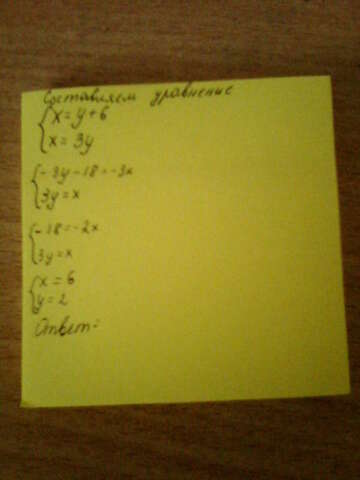 Составляем уравнение
x = y + 6
x = 3y
- 3y - 18 = -3x
3y = x
-18 = -2x
3y = x
x = 6
y = 2
Ответ: